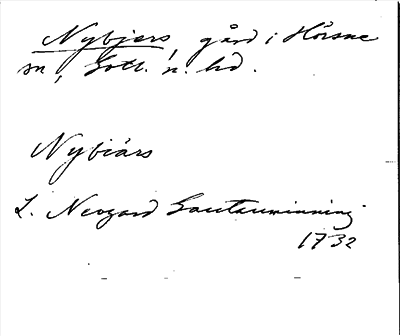 Nybjers, gård i Hörsne
sn, Gotl. n. hd.
Nybiärs
L. Neogard Gautauminning
1732